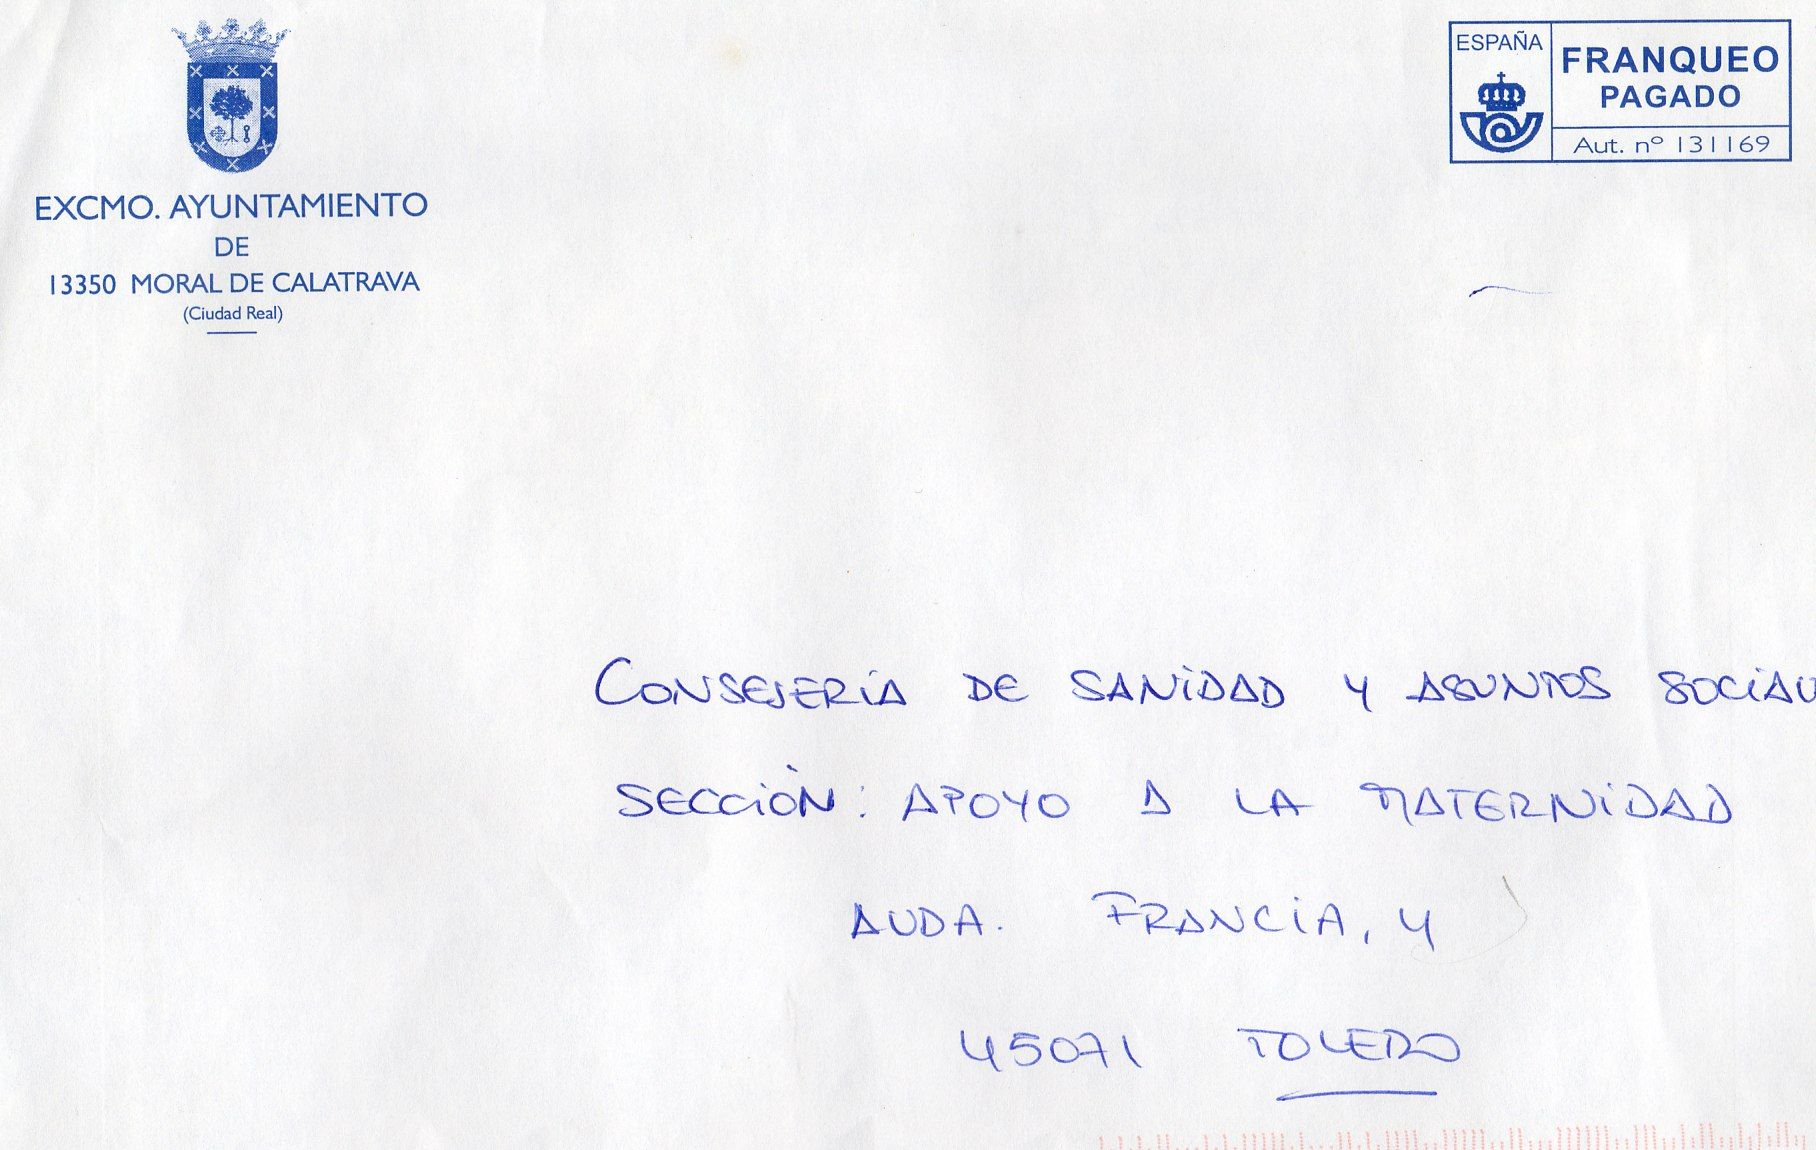 EXCMO. AYUNTAMIENTO
DE
13350 MORAL DE CALATRAVA
(Ciudad Real)
ESPAÑA
FRANQUEO
PAGADO
Aut. nº 131169
CONSEJERÍA DE SANIDAD Y ASUNTOS
SECCIÓN: APOYO A LA MATERNIDAD
AVDA. FRANCIA, 4
45071 TOLEDO